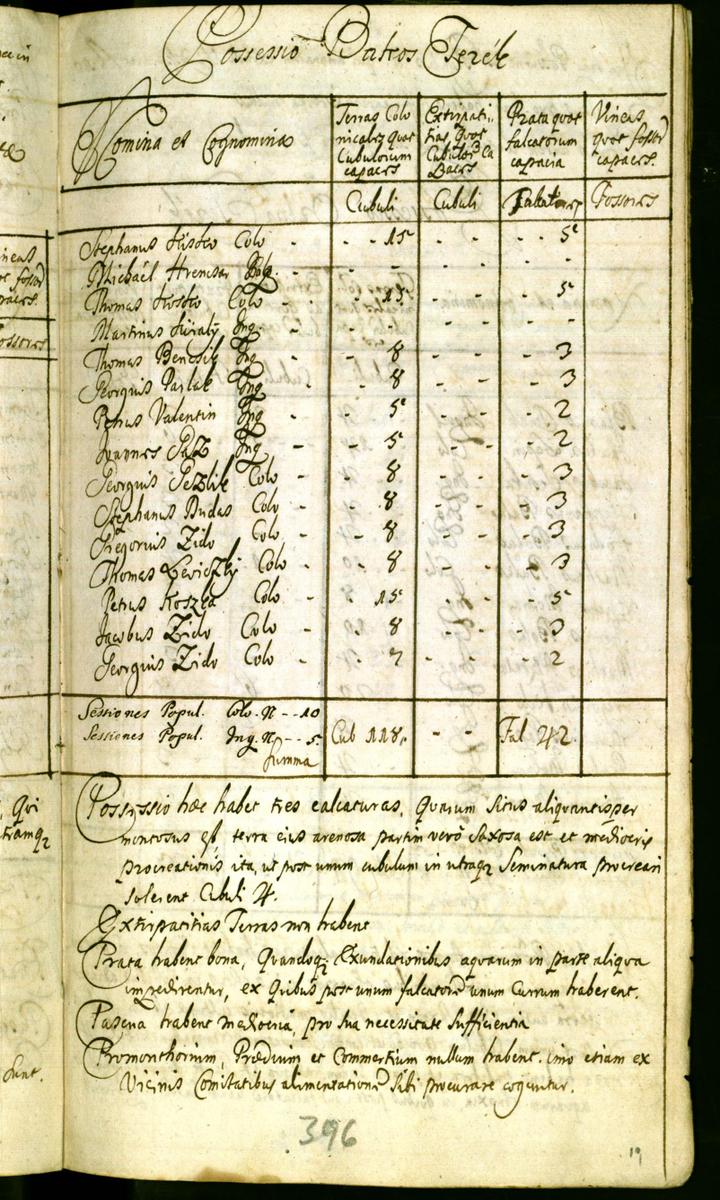 Possessio Bakos Terék
Nomina et Cognomina
Terras Colo
nicales quot
Cubulorum
capaces
Extirpati-
tias quot
Cubulor Ca
paces
Prata quot
falcatorum
capacia
Vineas
quot fossor
capaces.
Cubuli Cubuli Falcatores Fossores
Stephanus Colo - - - 15 - - - 5
Michaël Hrencsar - - - - - - -
Thomas Colo - - - 15 - - - 5
Martinus Király Inq. - - - - - - -
Thomas Bencsik Inq - - 8 - - - 3
Georgius Inq - - 8 - - - 3
Petrus Valentin Inq - - 5 - - - 2
Joannes Inq - - 5 - - - 2
Georgius Colo - - 8 - - - 3
Stephanus Budas Colo - - 8 - - - 3
Gregorius Zido Colo - - 8 - - - 3
Thomas Leviczky Colo - - 8 - - - 3
Petrus Koszka Colo - - 15 - - - 5
Jacobus Zido Colo - - 8 - - - 3
Georgius Zido Colo - - 7 - - - 2
Sessiones Popul. Colo. N - - 10
Sessiones Popul. Inq. N. - - 5.
Summa Cub 118. - - Fal 42
Possessio hæc habet tres calcaturas, quarum situs aliquantisper
montosus est, terra eius arenosa partim verò saxosa est et mediocris
procreationis ita, ut post unum cubulum in utraq seminatura procreari
solerent Cubuli 4.
Extirpatitias Terras non habent
Prata habent bona, quandoq Exundationibus aquarum in parte aliqua
impedirentur, ex quibus post unum falcatorem unum Currum haberent.
Pascua habent mediocria, pro sua necessitate sufficientia
Promonthorium, Prædium et Commertium nullum habent. imo etiam ex
Vicinis Comitatibus alimentationem sibi procurare coguntur.
396